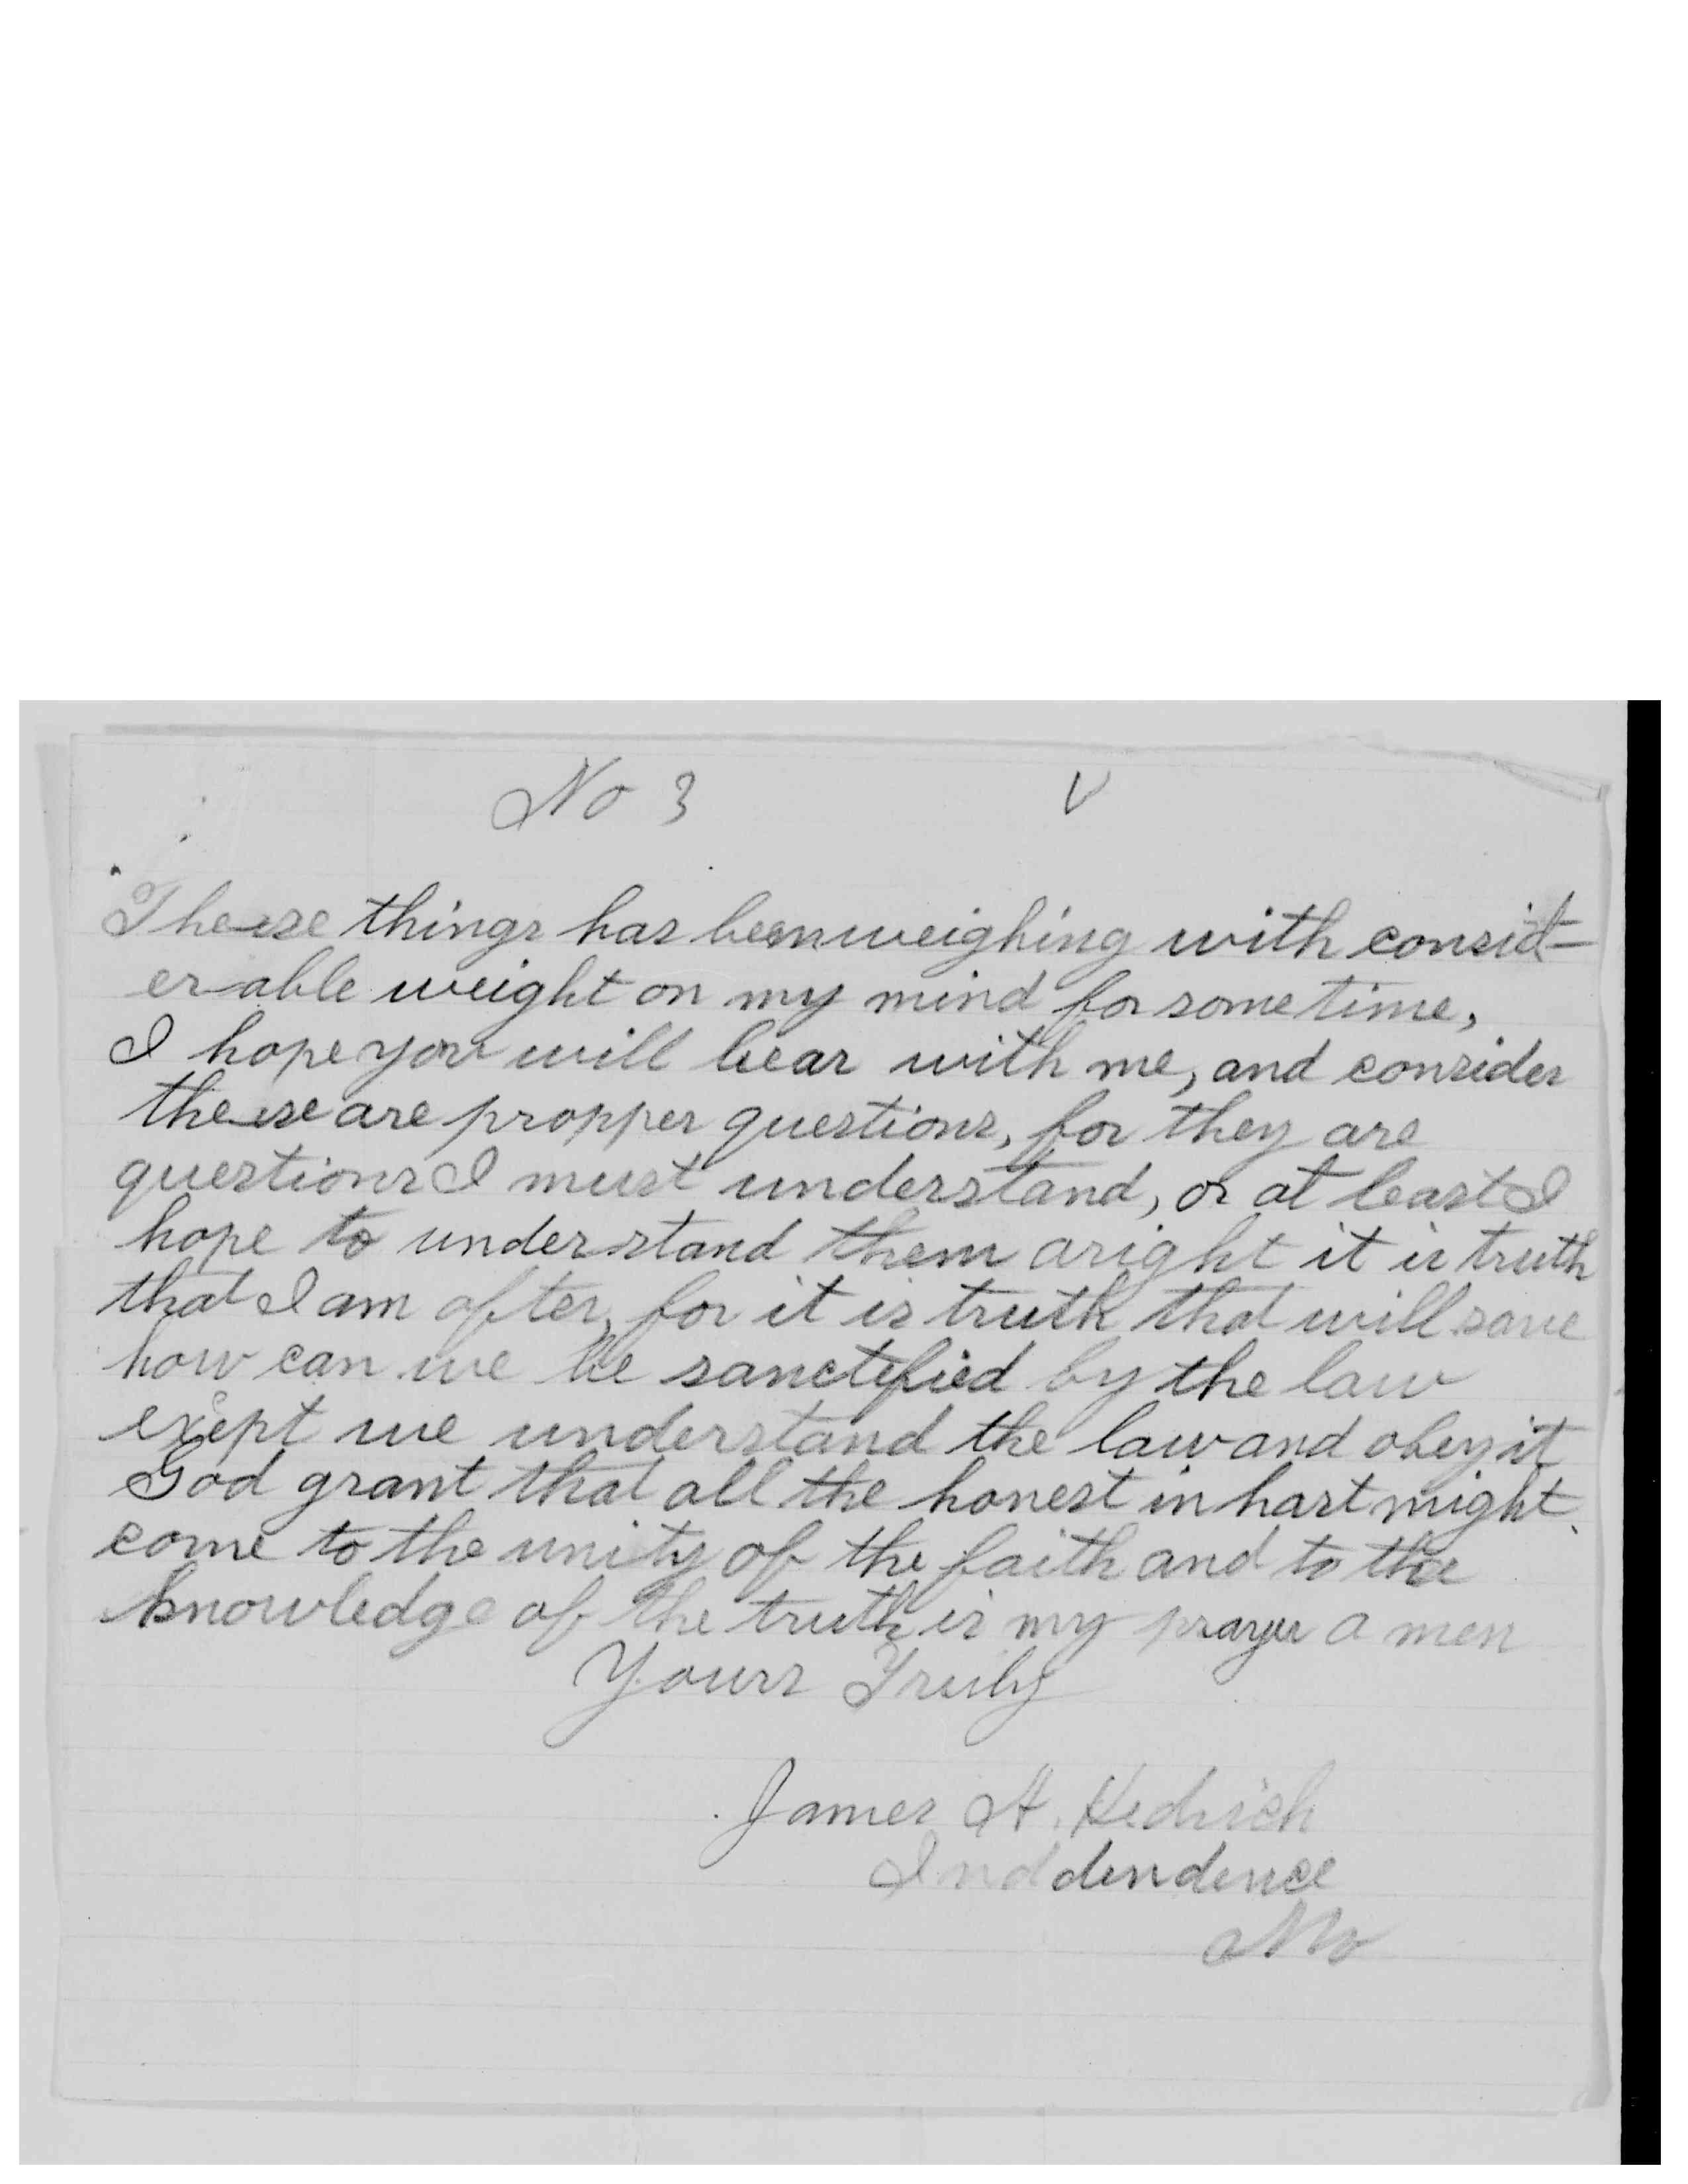 No 3 V
Theese things has been weighing with consid-
erable weight on my mind for some time,
I hope you will bear with me, and consider
theese are propper questions, for they are
questions I must understand, or at least I
hope to understand them aright it is truth
that I am after, for it is truth that will save
how can we be sanctified by the law
exept we understand the law and obey it
God grant that all the honest in hart might
come to the unity of the faith and to the
knowledge of the truth is my prayer a men
Yours Truly
James A. Hedrich
Inddendence
Mo